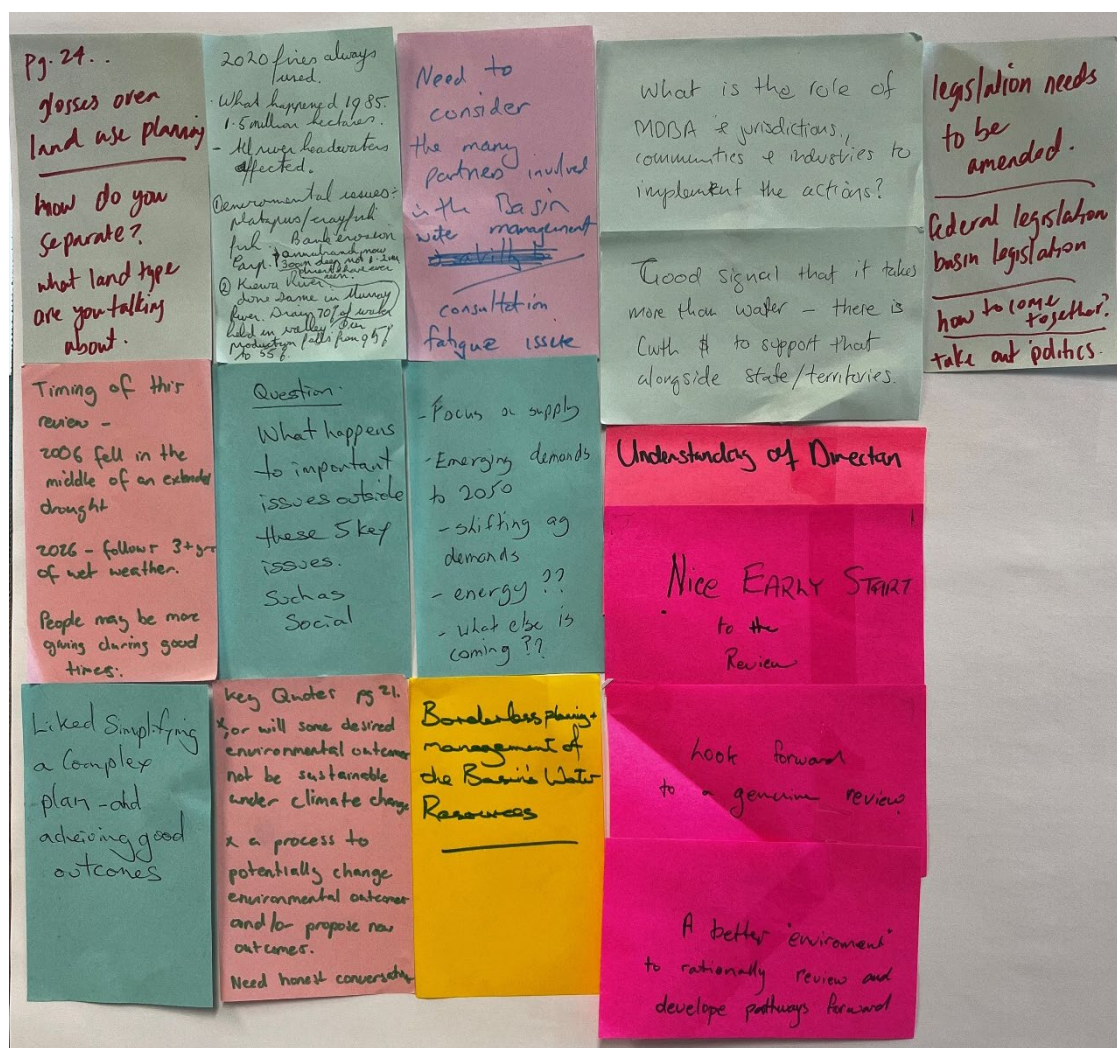 Pg. 24..
glosses over
land use planning
how do you
separate?
what land type
are you talking
about.
2020 fires always
used.
- What happened 1985.
1.5 million hectares.
- All river headwaters
affected.
① enviromental issues:
platapus/crayfish
fish. Bank erosion
Carp.
② Kiewa River.
done same in Murray
River. Drain 70% of water
held in valley
production falls from 95%
to 55%.
Need to
consider
the many
partners involved
in the Basin
water management
consultation
fatigue issue
What is the role of
MDBA & jurisdictions,
communities & industries to
implement the actions?
Good signal that it takes
more than water – there is
Cwth $ to support that
alongside state/territories.
legislation needs
to be
amended.
federal legislation
basin legislation
how to come
together?
take out politics.
Timing of this
review -
2006 fell in the
middle of an extended
drought
2026 - follows 3+yr
of wet weather.
People may be more
giving during good
times.
Question.
What happens
to important
issues outside
these 5 key
issues.
Such as
Social
- Focus on supply
- Emerging demands
to 2050
- shifting ag
demands
- energy ??
- what else is
coming ??
Understanding of Direction
NICE EARLY START
to the
Review
Look forward
to a genuine review
A better "enviroment"
to rationally review and
develope pathways forward
Liked Simplifying
a Complex
plan - and
acheiving good
outcomes
Key Quotes pg 21.
x or will some desired
environmental outcomes
not be sustainable
under climate change
x a process to
potentially change
environmental outcomes
and/or propose new
outcomes.
Need honest conversation
Borderless planning +
management of
the Basin's Water
Resources